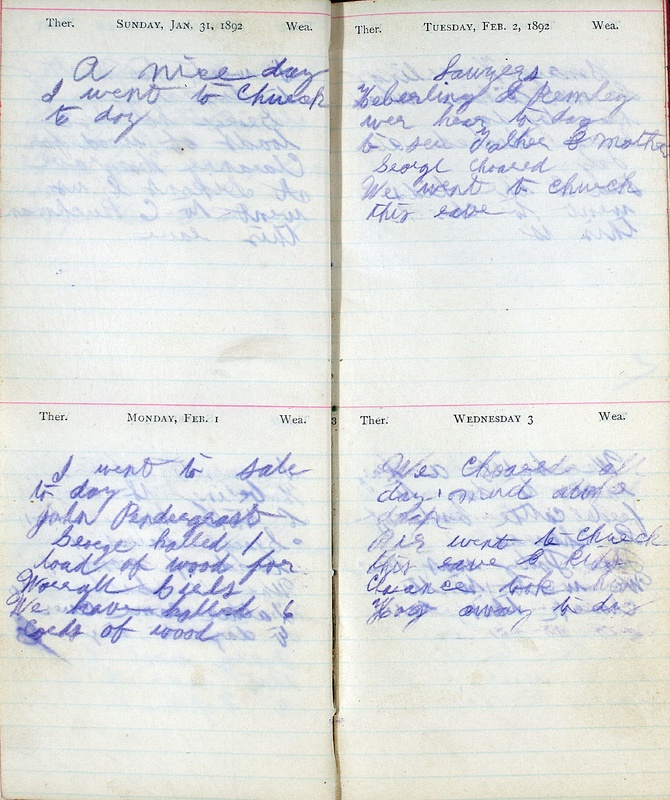 Ther. Sunday, Jan. 31, 1892 Wea.
A nice day
I went to Chuech
to day
Ther. Monday, Feb. 1 Wea.
I went to sale
to day
John Pendergrast
George halled 1
load of wood for
We have halled 6
coeds of wood
Ther. Tuesday, Feb. 2, 1892 Wea.
Lawyers
Heberling &
wer hear to day
to see Father & Mother
George choared
We went to church
this eave
Ther. Wednesday 3 Wea.
We Choared all
day
went to Chuech
this eave &
took
Hog away to day